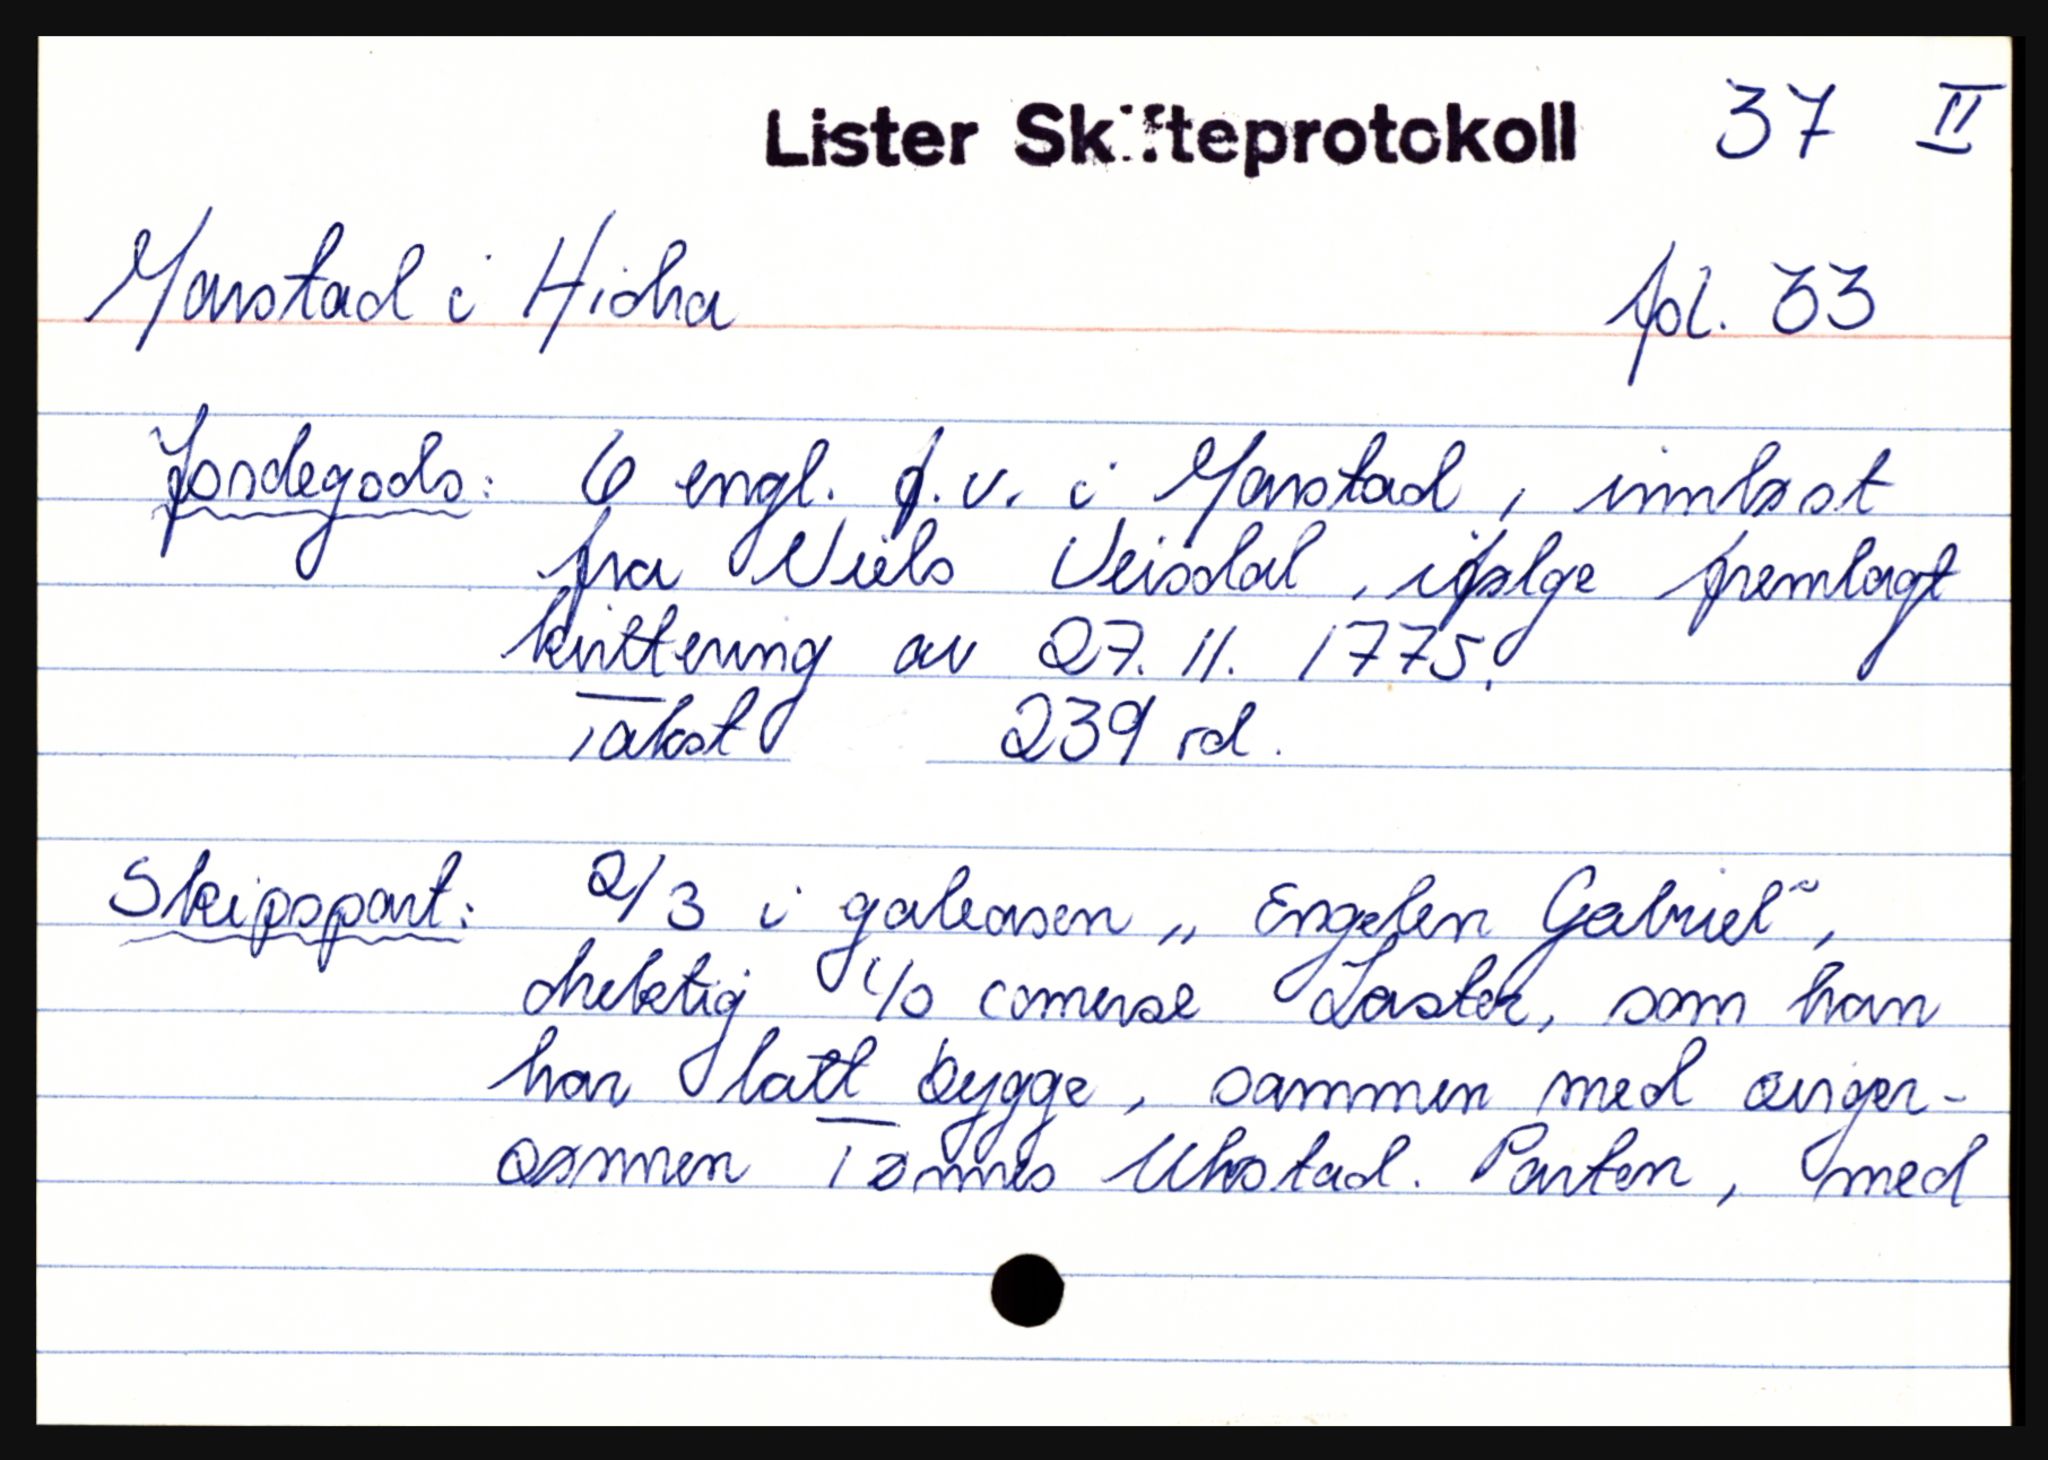 Lister Skifteprotokoll 37 II
Marstad i Hidra fol. 33
Jordegods: 6 engl. g.v. i Marstad, innløst
fra Niels Veisdal, ifølge fremlagt
kvittering av 27.11.1775.
Takst 239 rd.
Skipspart: 2/3 i galeasen „Engelen Gabriel",
drektig 40 comerse Læster, som han
har latt bygge, sammen med sviger-
sønnen Tønnes Ulvstad. Parten, med